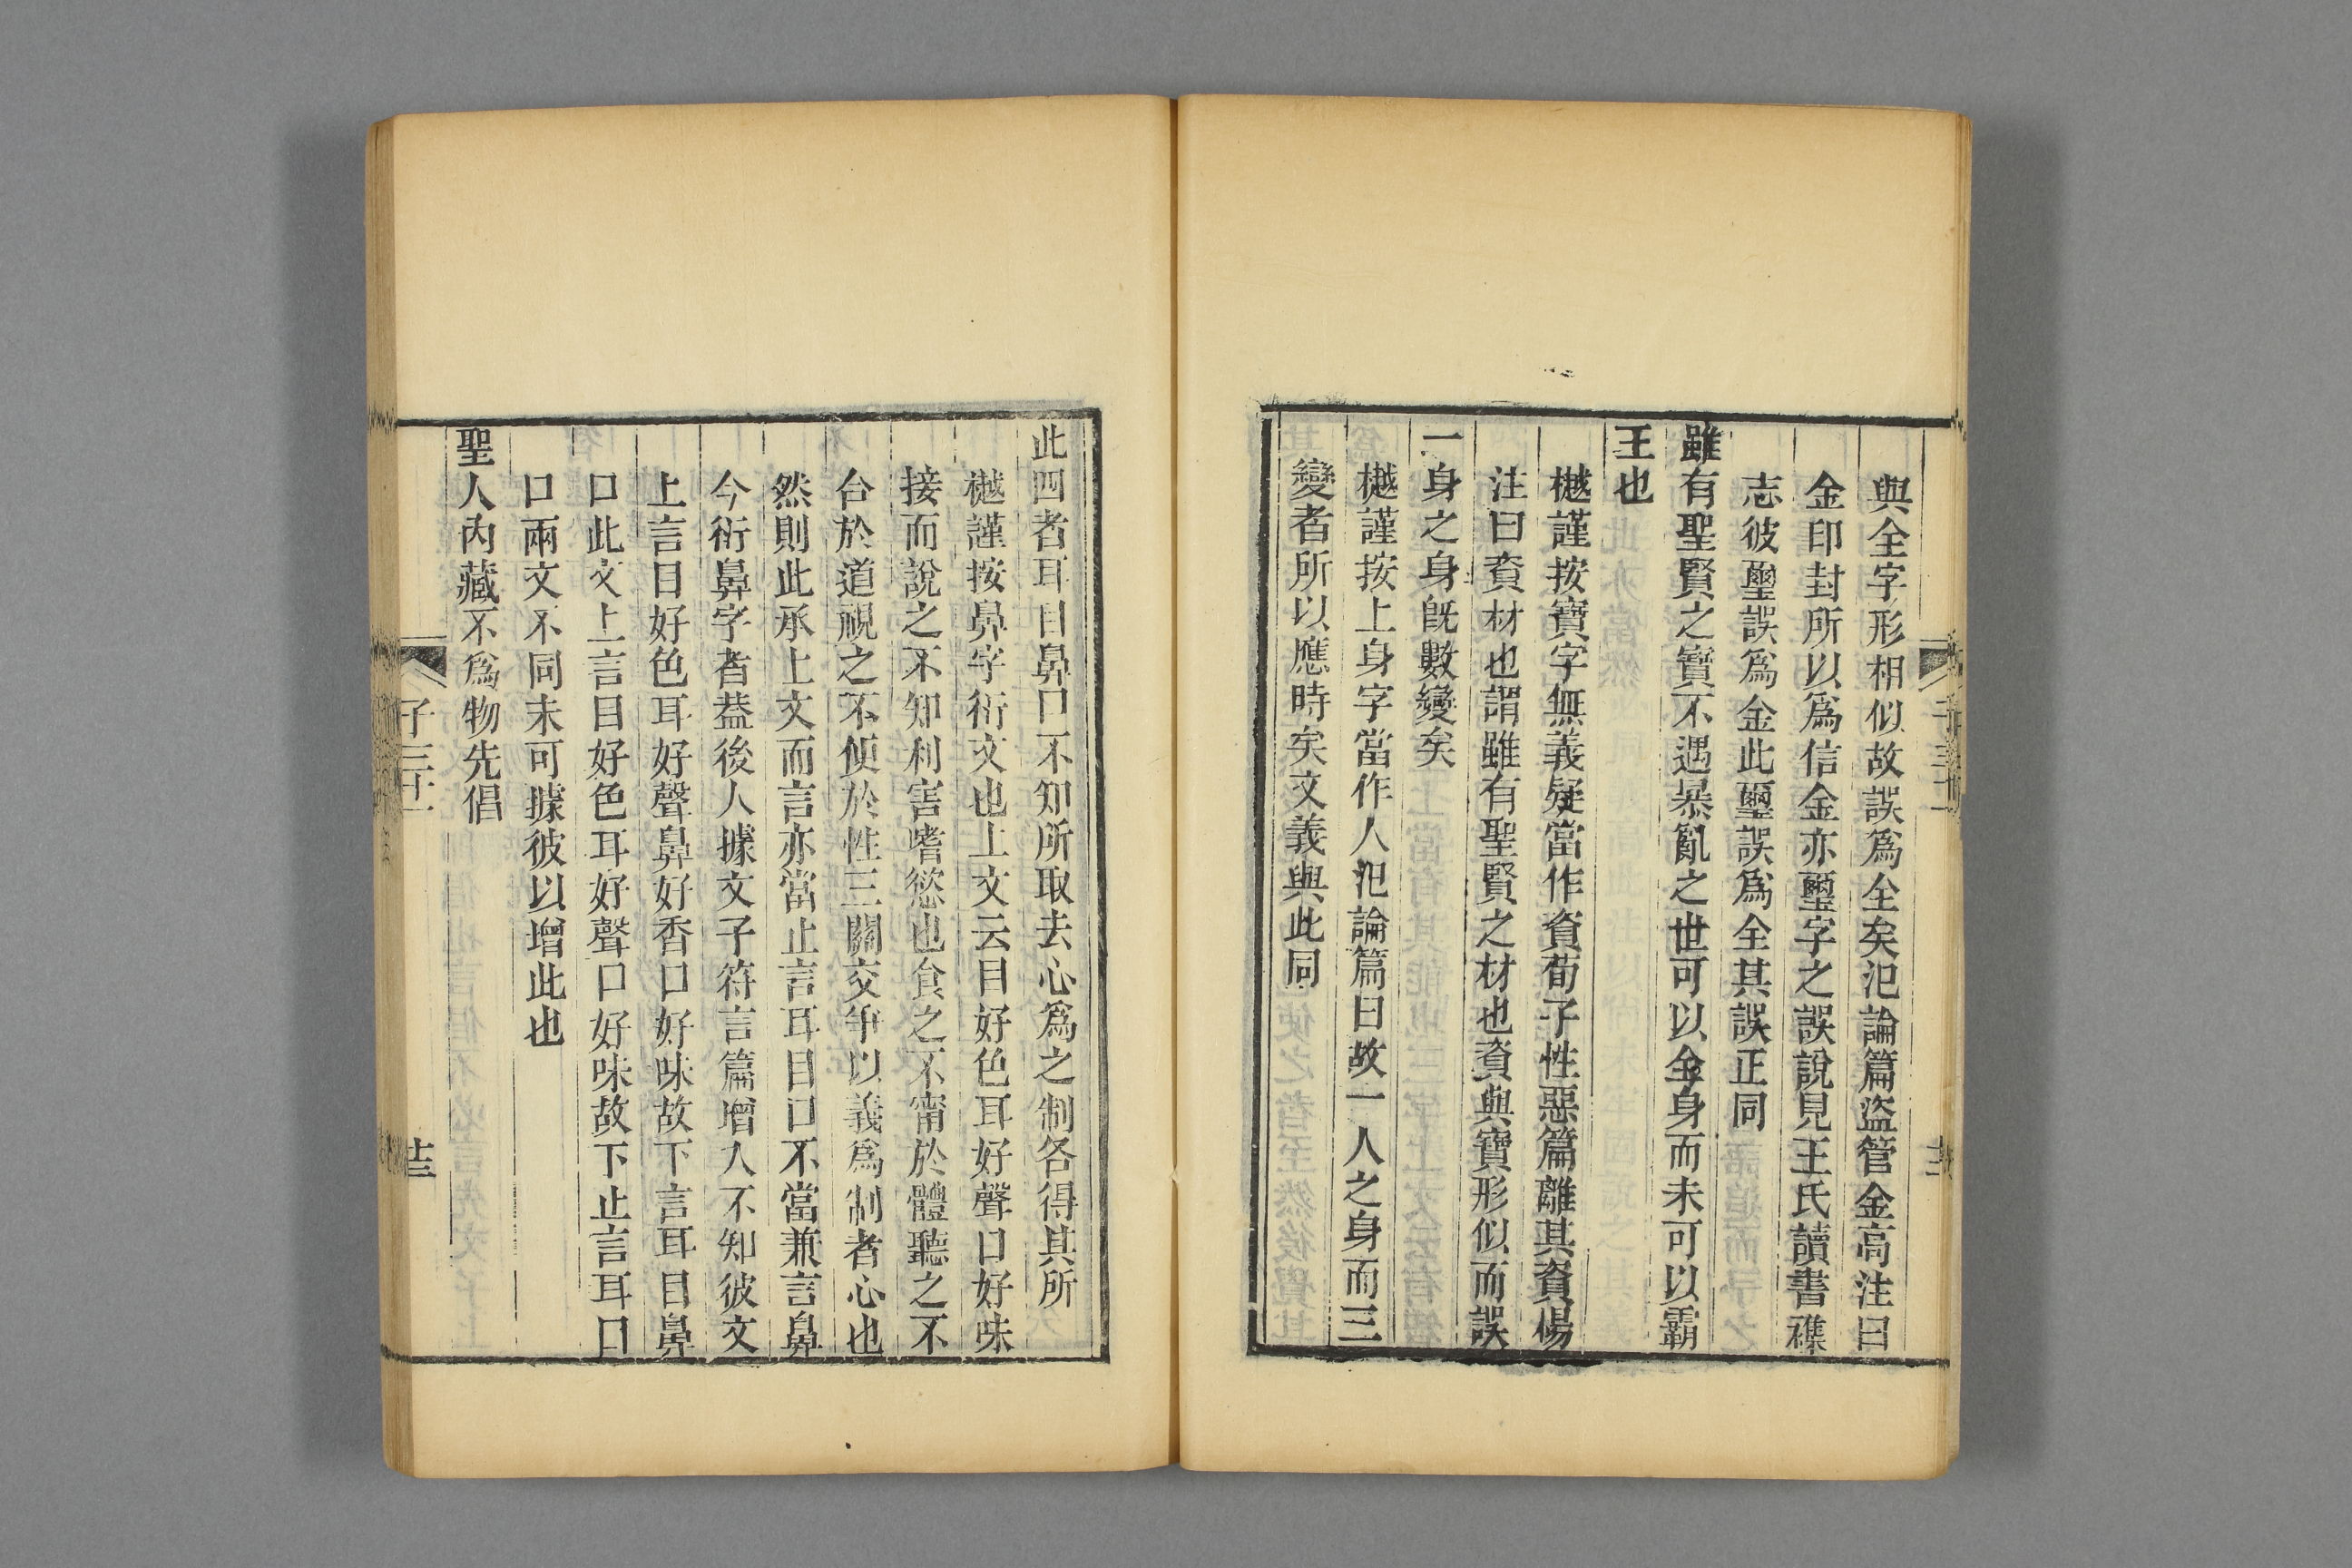 與全字形相似故誤爲全矣氾論篇盜管金高注曰
金印封所以爲信金亦璽字之誤說見王氏讀書襍
志彼璽誤爲金此璽誤爲全其誤正同
雖有聖賢之寶不遇暴亂之世可以全身而未可以霸
王也
樾謹按寶字無義疑當作資荀子性惡篇離其資楊
注曰資材也謂雖有聖賢之材也資與寶形似而誤
一身之身旣數變矣
樾謹按上身字當作人氾論篇曰故一人之身而三
變者所以應時矣文義與此同
此四者耳目鼻口不知所取去心爲之制各得其所
樾謹按鼻字衍文也上文云目好色耳好聲口好味
接而說之不知利害嗜慾也食之不甯於體聽之不
合於道視之不便於性三關交爭以義爲制者心也
然則此承上文而言亦當止言耳目口不當兼言鼻
今衍鼻字者葢後人據文子符言篇增入不知彼文
上言目好色耳好聲鼻好香口好味故下言耳目鼻
口此文上言目好色耳好聲口好味故下止言耳目
口兩文不同未可據彼以增此也
聖人內藏不爲物先倡
子三十